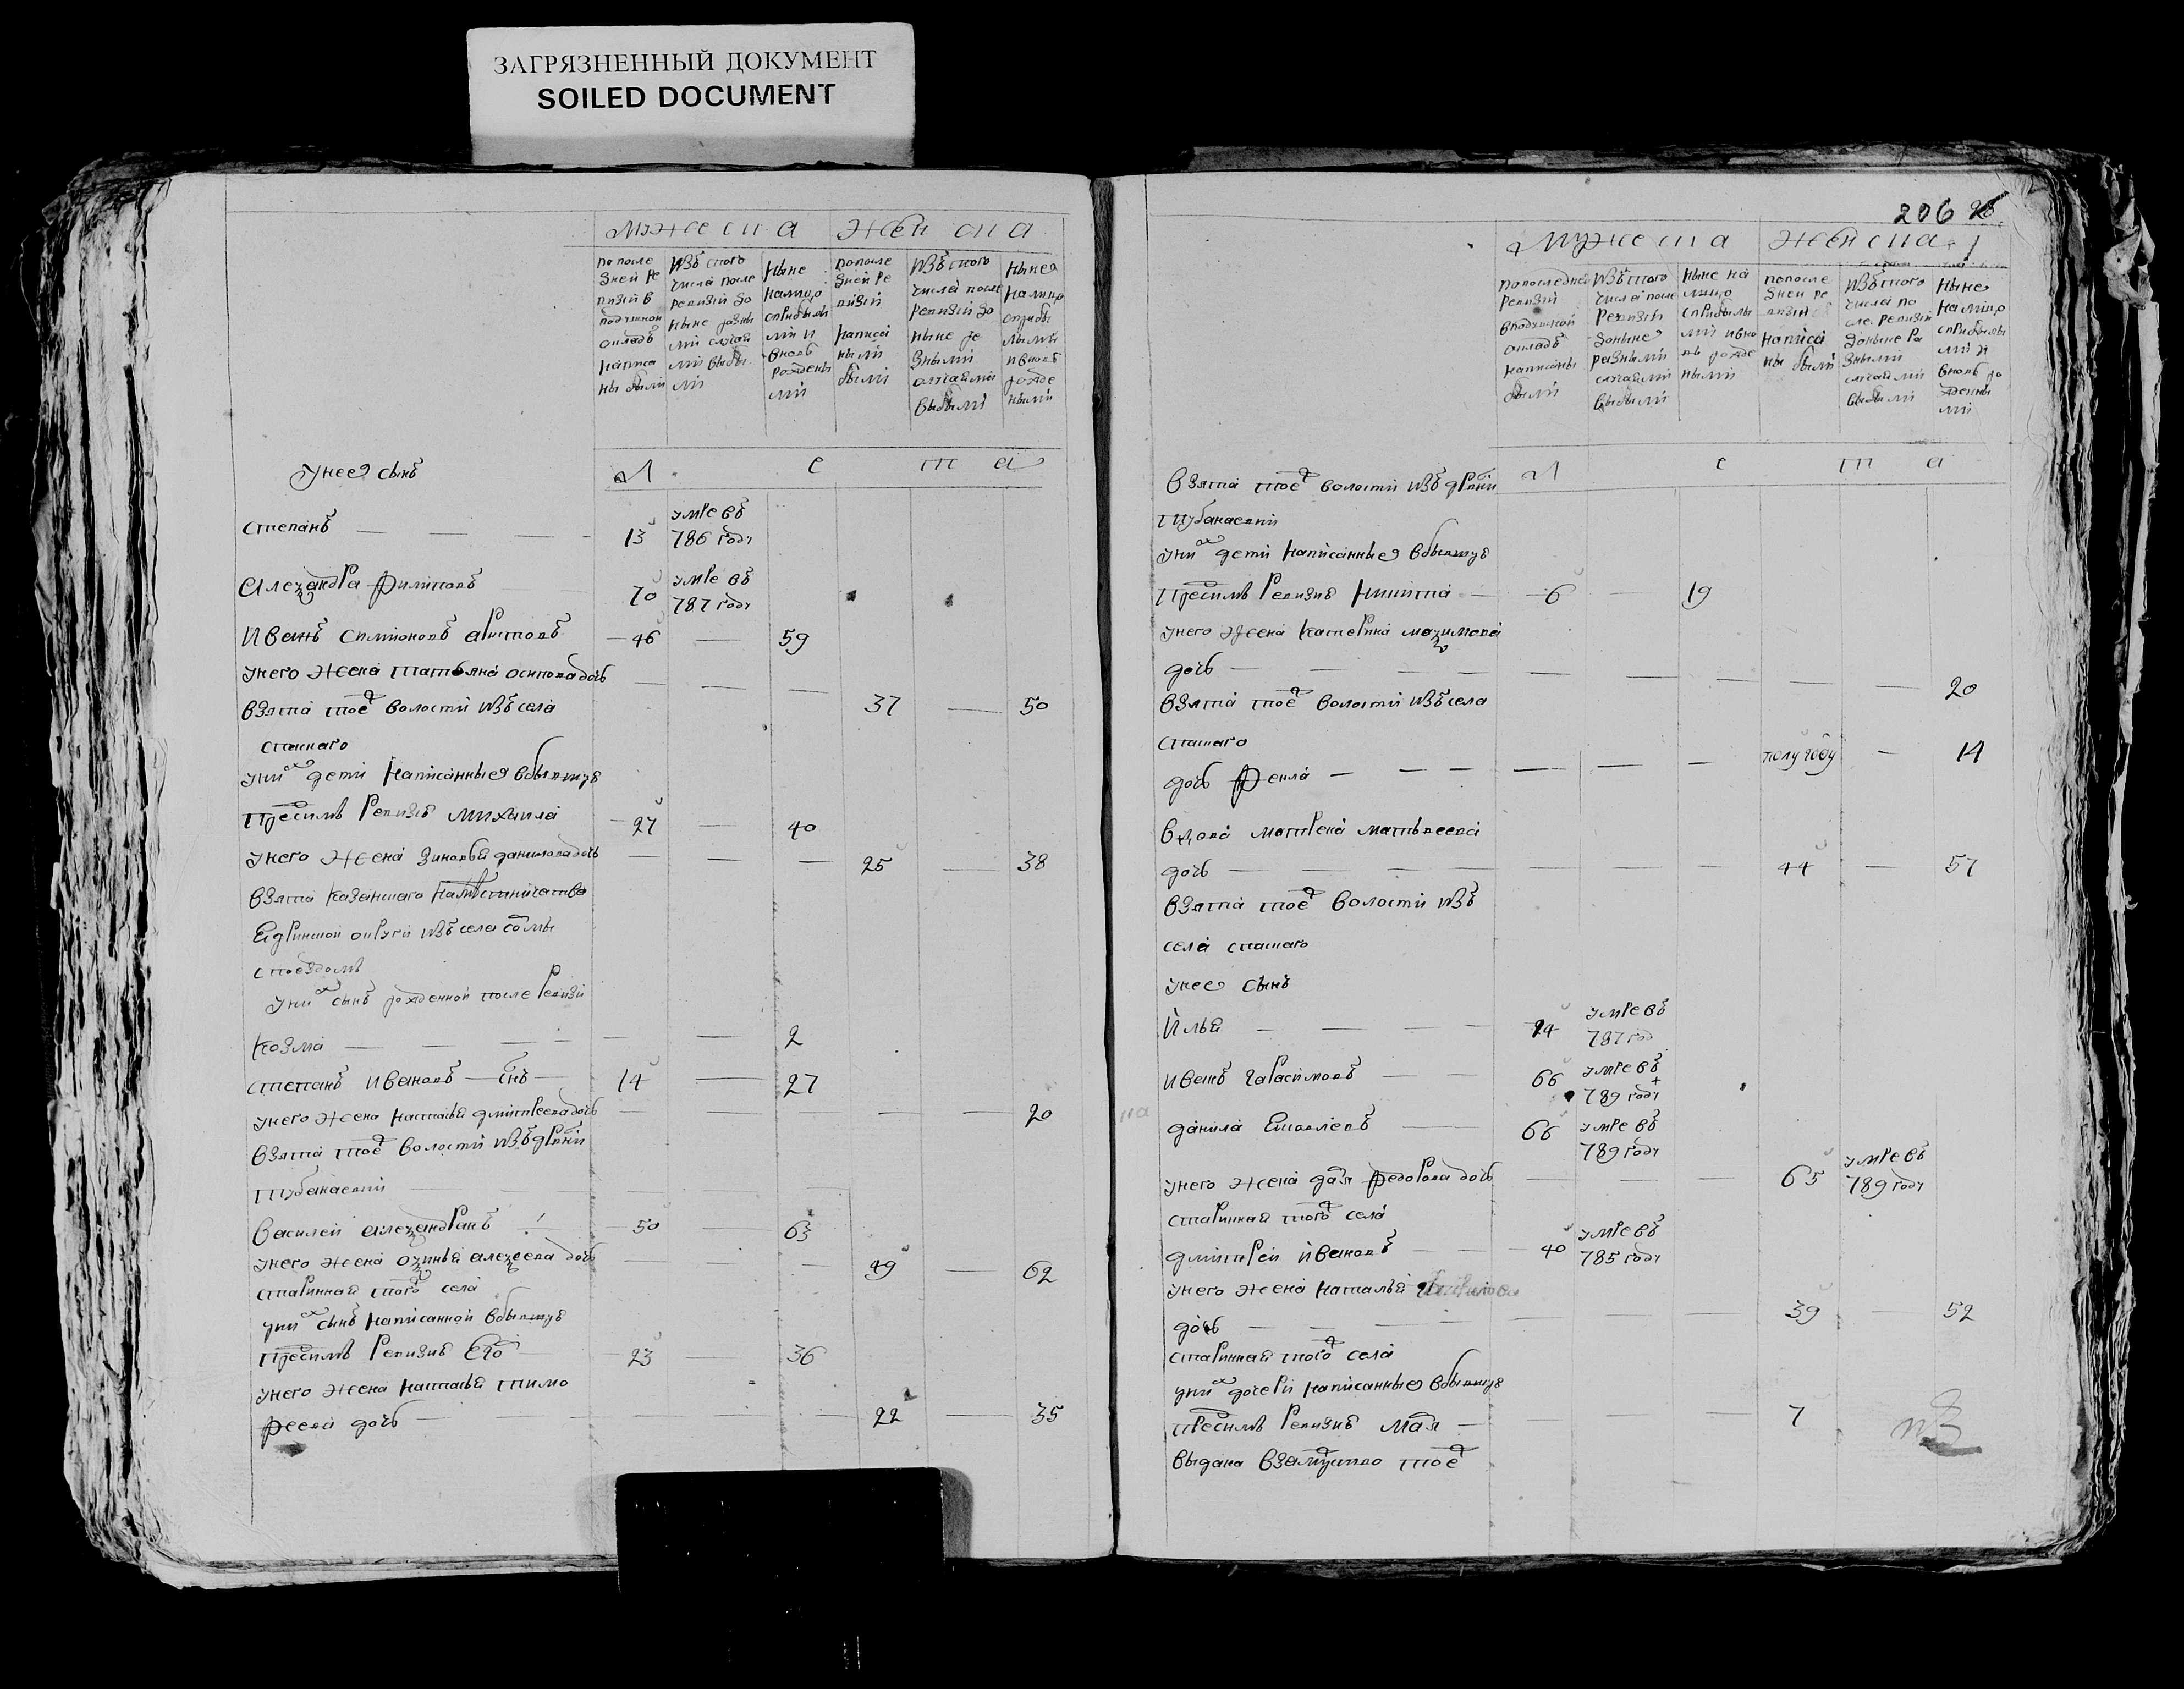 ЗАГРЯЗНЕННЫЙ ДОКУМЕНТ
SOILED DOCUMENT
мужеска женска
по после
дней ре
визии в
подушной
окладъ
написа
ны были
изъ того
числа после
ревизии до
ныне разны
ми случаи
ми выбы
ли
ныне
налицо
сприбылы
ми и
вновь
рожденны
ми
по после
дней ре
визии
написа
ны
были
изъ того
числа после
ревизии до
ныне ра
зными
случаими
выбыли
ныне
налицо
сприбы
лыми
и вновь
рожде
ными
л е т а
унее сынъ
степанъ 13 умре въ
786 году
Алеѯандра филиповъ 70 умре въ
787 году
Иванъ симионовъ 46 59
унего жена татьяна осипова дочь
взята тоеѣ волости изъ села 37 50
спаскаго
униⷯ дети написанные вбывшую
пресимъ ревизию михаила 27 40
унего жена зиновья данилова дочь 25 38
взята казанскаго наместничества
Ядринской округи изъ села
униⷯ сынъ рожденной после ревизи
козма 2
степанъ ивановъ снъ 14 27
унего жена наталья дмитреева дочь 20
взята тое волости изъ дрвни
тубанаевки
василей алеѯандровъ 50 63
унего жена оѯинья алеѯеева дочь 49 62
старинная того села
униⷯ сынъ написанной вбывшую
пресимъ ревизию Его 23 36
унего жена наталья тимо
феева дочь 22 35
206
мужеска женска
попоследней
ревизии
вподушной
окладъ
написаны
были
изъ того
числа после
ревизии
доныне
разными
случаими
выбыли
ныне на
лицо
сприбылы
ми ивно
вь рожде
ными
попосле
дней ре
визии
написа
ны были
изъ того
числа по
сле ревизии
доныне ра
зными
случаими
выбыли
ныне
налицо
сприбылы
ми и
вновь ро
жденны
ми
л е т а
взята тое волости изъ дрвни
тубанаевки
униⷯ дети написанные вбывшую
пресимъ ревизию никита 6 19
унего жена катерина маѯимова
дочь 20
взята тое волости изъ села
спаскаго
дочь фекла полугоду 14
вдова матрена матвеева
дочь 44 57
взята тое волости изъ
села спаскаго
унее сынъ
Илья 24 умре въ
787 год
иванъ гарасимовъ 66 умре въ
789 году
данила Яковлевъ 66 умре въ
789 году
унего жена даря федорова дочь 65 умре въ
789 году
старинная того села
дмитреи ивановъ 40 умре въ
785 году
унего жена наталья
дочь 39 52
старинная того села
униⷯ дочери написанные вбывшую
пресимъ ревизию мая 7
выдана взамуство тое